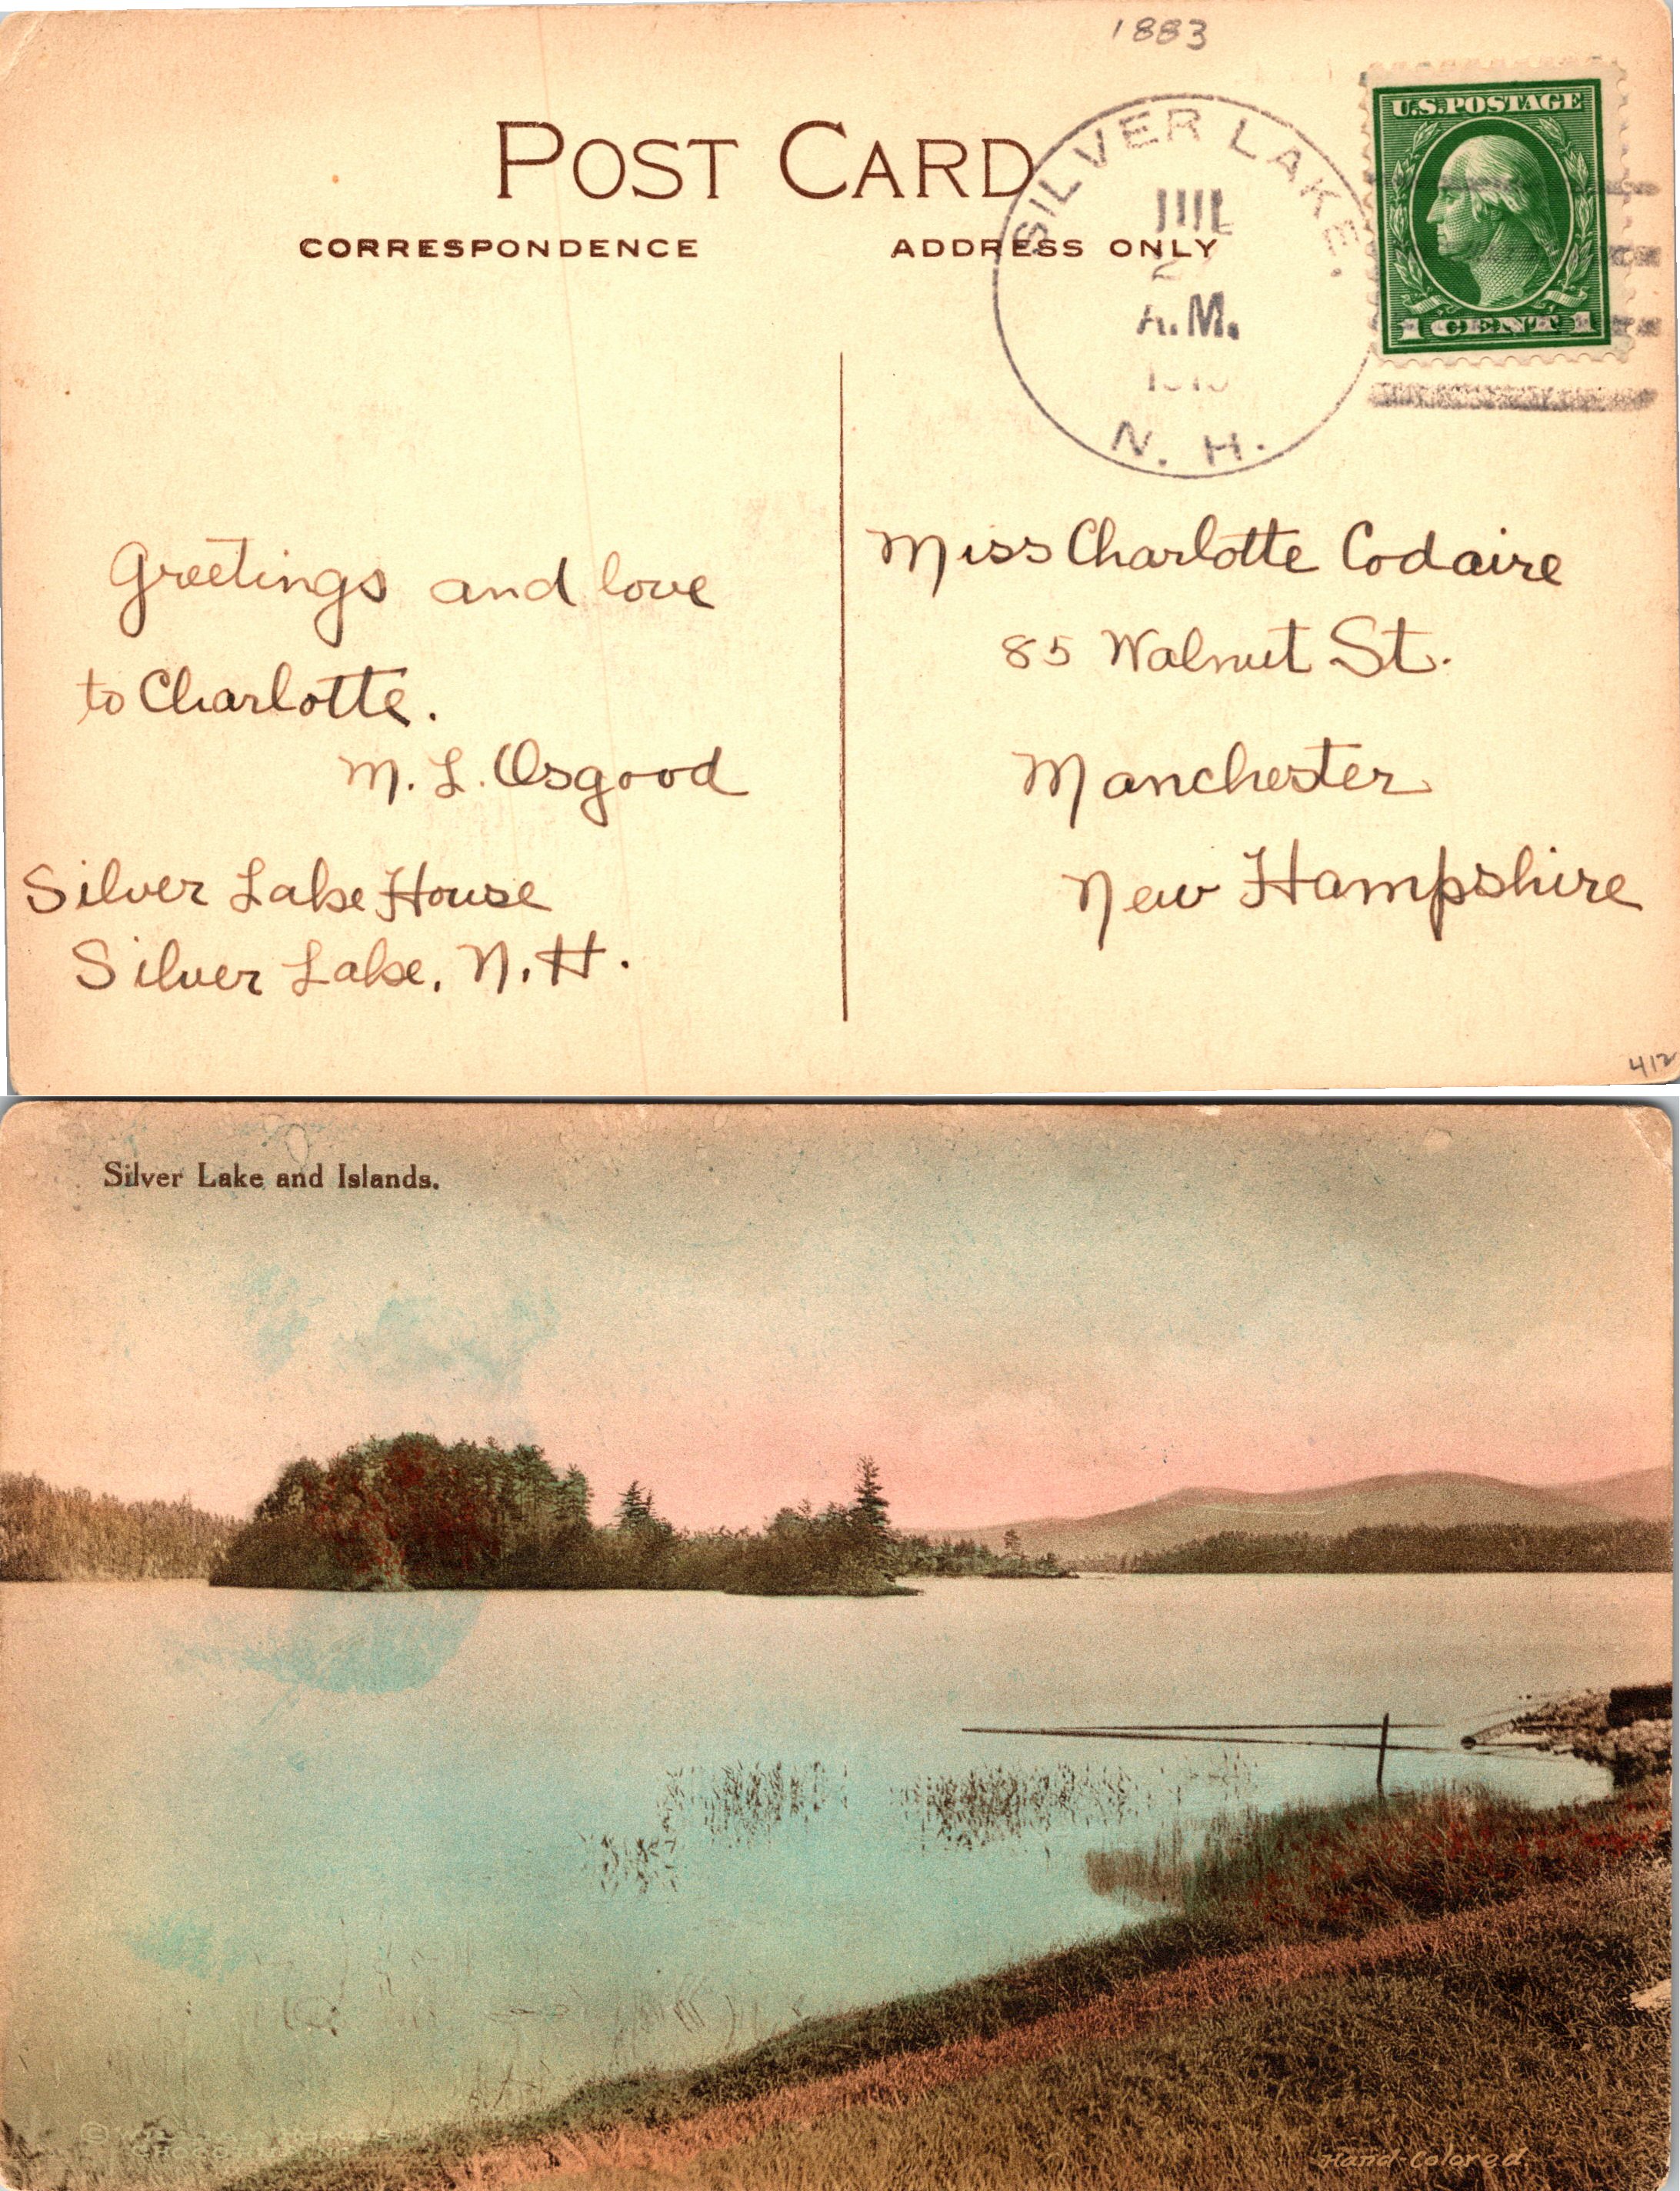 1883
POST CARD
CORRESPONDENCE
ADDRESS ONLY
SILVER LAKE.
JUL
A.M.
N. H.
U.S. POSTAGE
1 CENT 1
Greetings and love
to Charlotte.
M. L. Osgood
Silver Lake House
Silver Lake, N. H.
Miss Charlotte Codaire
85 Walnut St.
Manchester
New Hampshire
412
Silver Lake and Islands.
©
Hand-Colored.